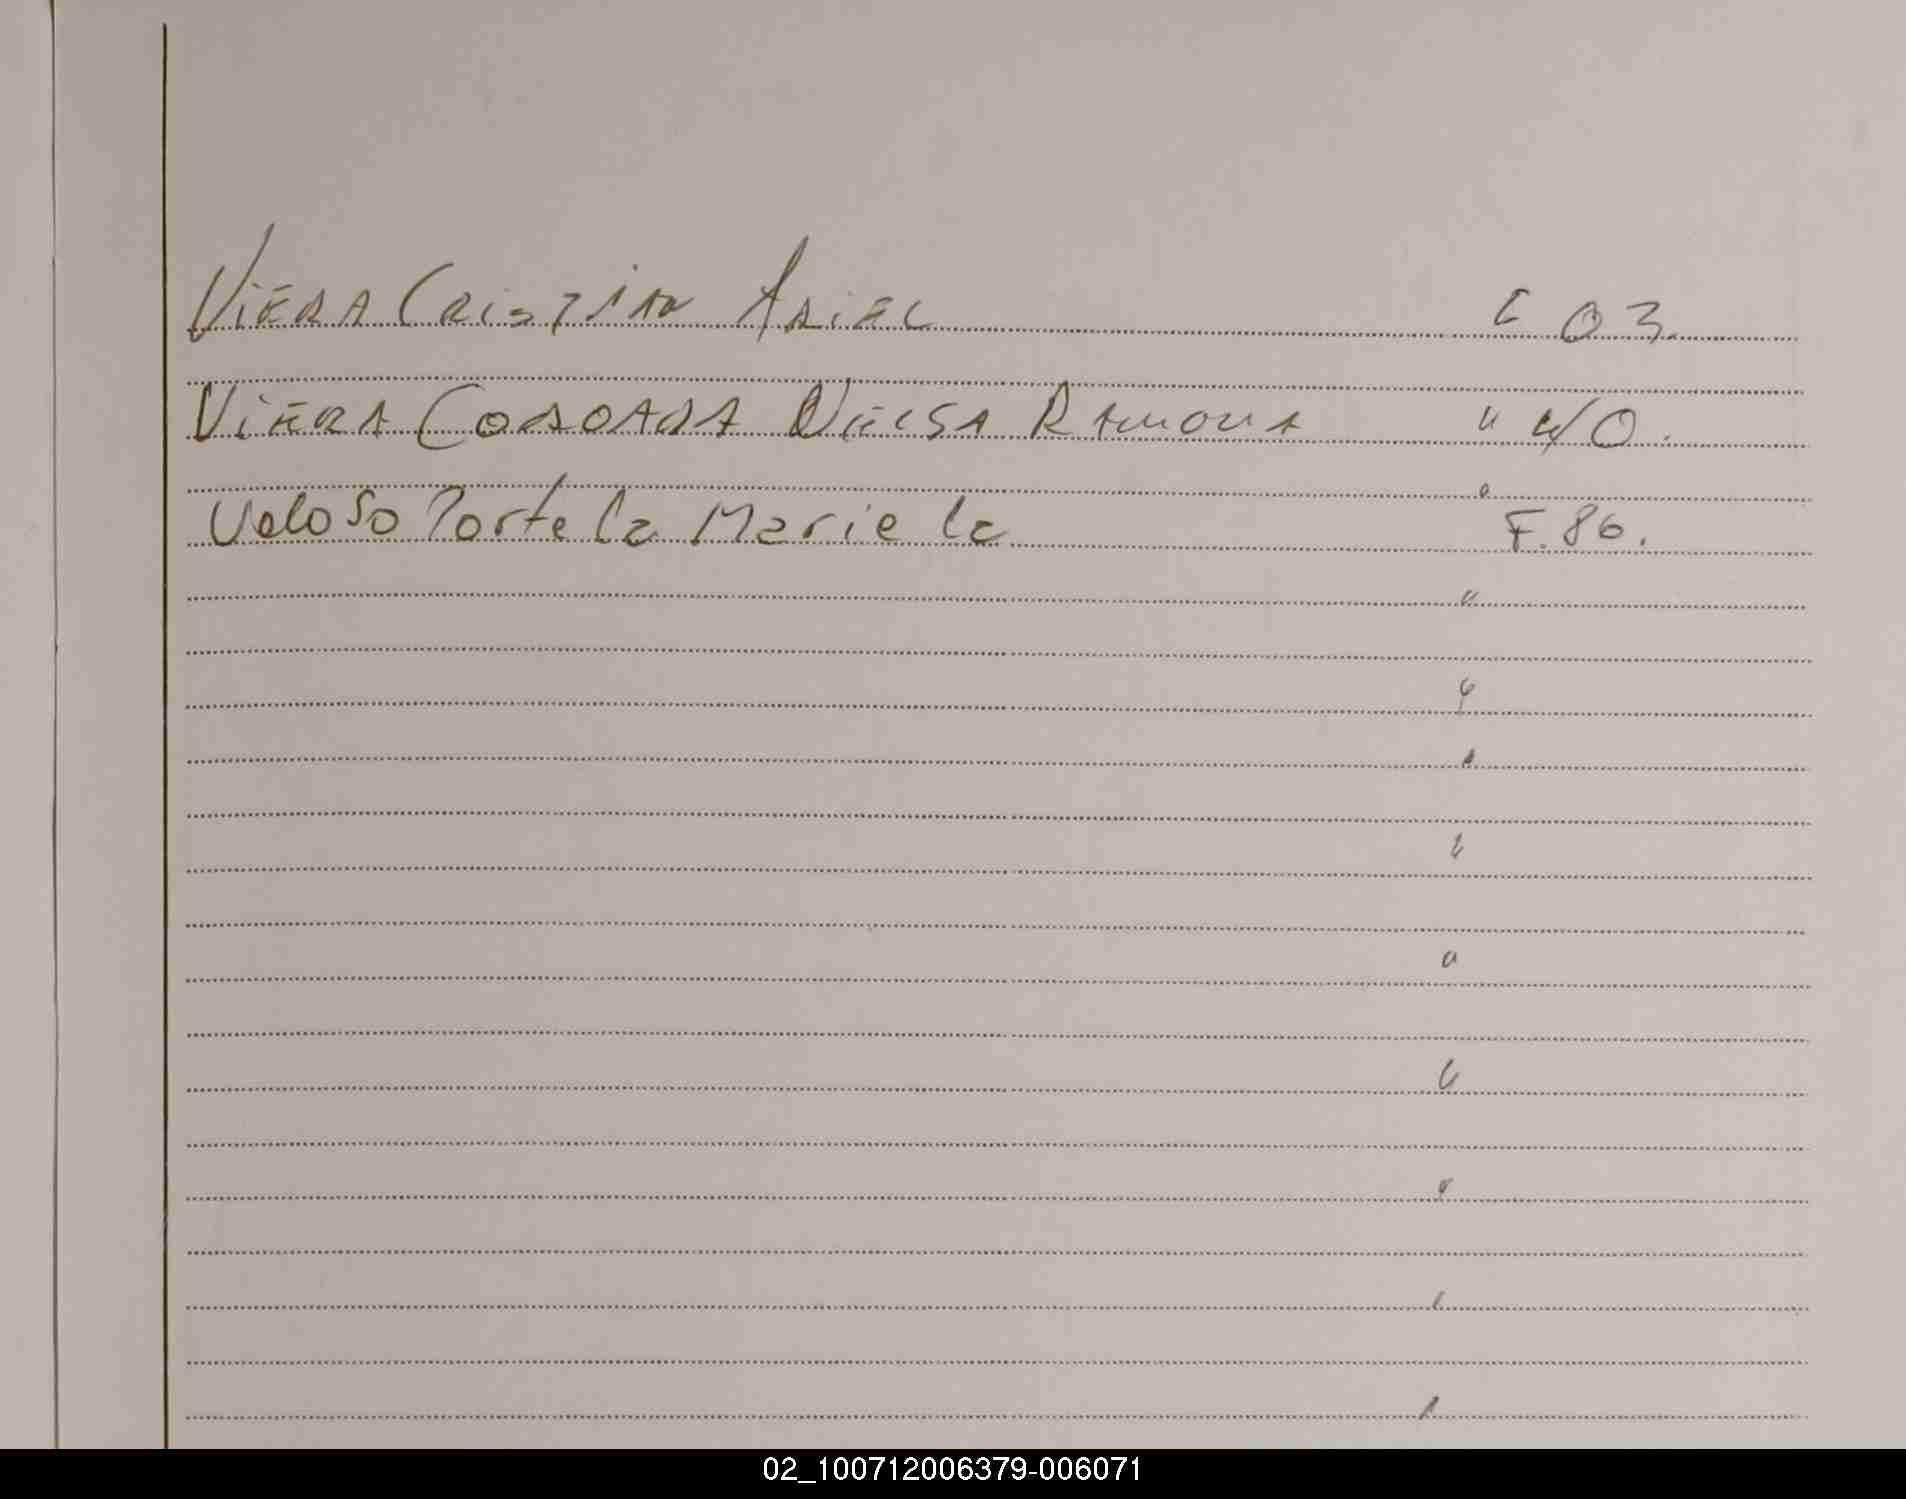 Viera Cristian Ariel 03.
Viera Nelsa Ramona " 40.
Veloso Portela Mariela F. 86.
02_100712006379-006071